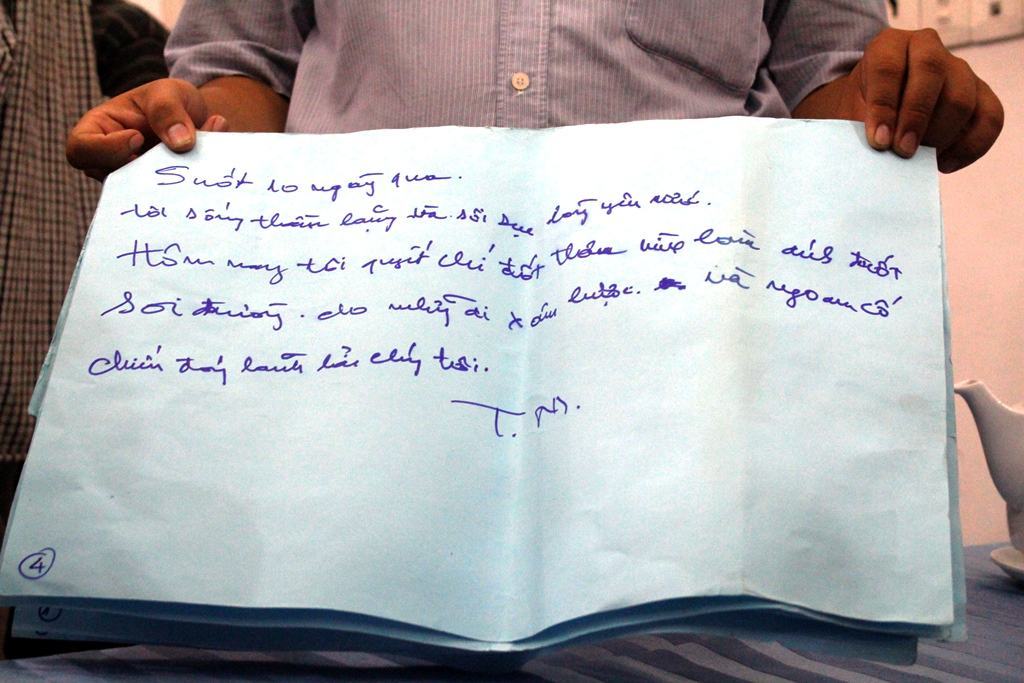 Suốt 10 ngày qua.
tôi sống thầm lặng và sôi sục lòng yêu nước.
Hôm nay tôi quyết chí đốt thân mình làm ánh đuốt
Soi đường. cho những ai xâm lược. và ngoan cố
chiếm đóng lãnh hải chúng tôi.
T. M.
4